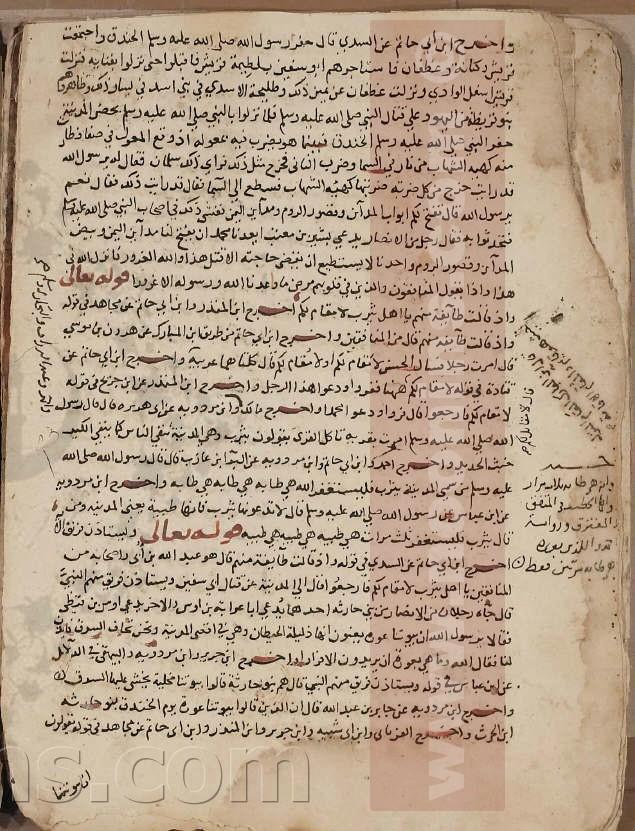 واخرج ابن ابي حاتم عن السدي قال حفر رسول الله صلى الله عليه وسلم الخندق واجتمعت
قريش وكنانة وغطفان فاستاجرهم ابو سفين بلطيمة قريش فاقبلوا حتى نزلوا بفنايه فنزلت
قريش اسفل الوادي ونزلت غطفان عن يمين ذلك وطليحة الاسدي في بني اسد في يسار ذلك وظاهرهم
بنو قريظة من اليهود على قتال النبي صلى الله عليه وسلم فلما نزلوا بالنبي صلى الله عليه وسلم بحضر المدينة
حفر النبي صلى الله عليه وسلم الخندق فبينما هو يضرب فيه بمعوله اذ وقع المعول في صفا فطار
منه كهية الشهاب من نار في السما وضرب الثاني فخرج مثل ذلك فراي ذلك سلمان فقال له يرسول الله
قد رايت خرج من كل ضربة ضربتها كهية الشهاب فسطع الى السما فقال قد رايت ذلك فقال نعم
يرسول الله قال تفتح لكم ابواب المداين وقصور الروم ومداين اليمن ففشى ذلك في اصحاب النبي صلى الله عليه وسلم
فتحدثوا به فقال رجل من الانصار يدعى بشير بن معتب ايعدنا محمد ان يفتح لنا مداين اليمن وبيض
المداين وقصور الروم واحدنا لا يستطيع ان يقضي حاجته الا قتل هذا والله الغرور فانزل الله في
هذا واذ يقول المنافقون والذين في قلوبهم مرض ما وعدنا الله ورسوله الا غرورا قوله تعالى
واذ قالت طايفة منهم يا اهل يثرب لا مقام لكم اخرج ابن المنذر وابن ابي حاتم عن مجاهد في قوله
واذ قالت طايفة منهم قال من المنافقين واخرج ابن ابي حاتم من طريق ابن المبارك عن هرون بن موسى
قال امرت رجلا فسال الحسن لا مقام لكم او لا مقام لكم قال كلتاهما عربية واخرج ابن ابي حاتم عن
قتادة في قوله لا مقام لكم ههنا ففروا ودعوا هذا الرجل واخرج ابن المنذر عن ابن جريج في قوله
لا مقام لكم فارجعوا قال فروا ودعوا محمدا واخرج مالك وابن مردويه عن ابي هريرة قال قال رسول
الله صلى الله عليه وسلم امرت بقرية تاكل القرى يقولون يثرب وهي المدينة تنفي الناس كما ينفي الكير
خبث الحديد واخرج احمد وابن ابي حاتم وابن مردويه عن البرا بن عازب قال قال رسول الله صلى الله
عليه وسلم من سمى المدينة يثرب فليستغفر الله هي طابه هي طابه هي طابه واخرج ابن مردويه
عن ابن عباس عن رسول الله صلى الله عليه وسلم قال لا تدعونها يثرب فانها طيبة يعني المدينة ومن
قال يثرب فليستغفر الله ثلث مرات هي طيبه هي طيبه هي طيبه قوله تعالى ويستاذن فريق الاية
اخرج ابن ابي حاتم عن السدي في قوله واذ قالت طايفة منهم قال هو عبد الله بن ابي واصحابه من
المنافقين يا اهل يثرب لا مقام لكم فارجعوا قال الى المدينة عن قتال ابي سفين ويستاذن فريق منهم النبي
قال جاه رجلان من الانصار من بني حارثة احدهما يدعى ابا عرابة بن اوس والاخر يدعى اوس بن قيظي
فقالا يرسول الله ان بيوتنا عورة يعنون انها ذليلة الحيطان وهي في اقصى المدينة ونحن نخاف السرق فاذن
لنا فقال الله وما هي بعورة ان يريدون الا فرارا واخرج ابن جرير وابن مردويه والبيهقي في الدلايل
عن ابن عباس في قوله ويستاذن فريق منهم النبي قال هم بنو حارثة قالوا بيوتنا مخلية يخشى علينا السرق
واخرج ابن مردويه عن جابر بن عبد الله قال ان الذين قالوا بيوتنا عورة يوم الخندق بنو حارثه
ابن الحرث واخرج الفريابي وابن ابي شيبه وابن جرير وابن المنذر وابن ابي حاتم عن مجاهد في قوله يقولون
ان بيوتنا
ns.com